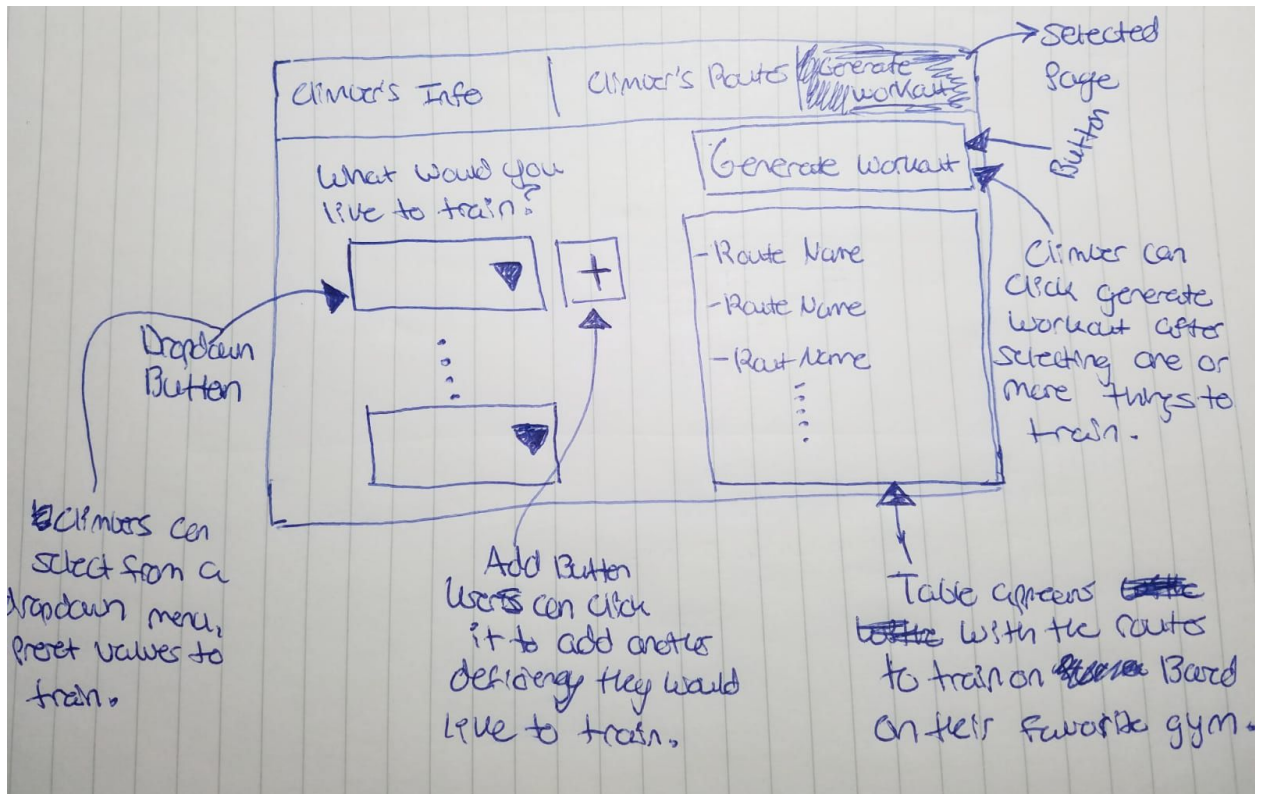 Climber's Info
Climber's Routes
Generate
workout
Selected
Page
Button
What would you
like to train?
Generate workout
+
- Route Name
- Route Name
- Rout Name
Dropdown
Button
Climber can
click generate
workout after
selecting one or
more things to
train.
Climbers can
select from a
dropdown menu,
preset values to
train.
Add Button
Users can click
it to add another
deficiency they would
like to train.
Table appears
with the routes
to train on Board
on their favorite gym.